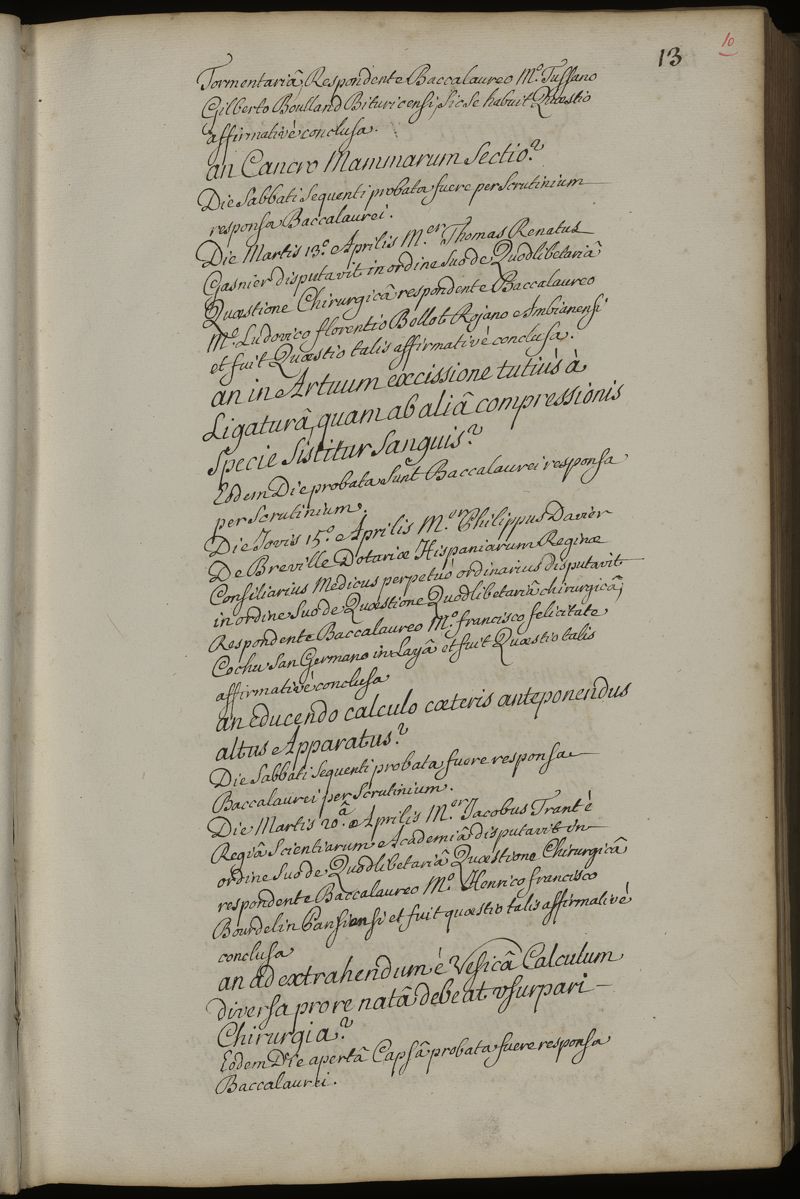 13
10
Tormentariâ, Respondente Baccalaureo M.º Tussano
Gilberto Boulland Bituricensi, sic se habuit Quæstio
affirmativè conclusa.
an Cancro Mammarum Sectio?
Die Sabbati Sequenti probata fuere per Scrutinium
responsa Baccalaurei.
Die Martis 13.º Aprilis M.er Thomas Renatus
Gasnier disputavit in ordine suo de Quodlibetariâ
Quæstione Chirurgicâ respondente Baccalaureo
M.º Ludovico florentio Bellot Rojano Ambianensi
et fuit Quæstio talis affirmativè conclusa.
an in Artuum excissione tutiùs à
Ligaturâ, quam ab aliâ compressionis
Specie Sistitur Sanguis?
Eodem Die probata Sunt Baccalaurei responsa
per Scrutinium.
Die Jovis 15.º Aprilis M.er Philippus Davier
De Breville Dotariæ Hispaniarum Reginæ
Consiliarius Medicus perpetuò ordinarius disputavit
in ordine Suo de Quæstione Quodlibetariâ chirurgicâ,
Respondente Baccalaureo M.º francisco felicitate
Cochu San Germano in Layâ et fuit Quæstio talis
affirmativè conclusa
an educendo calculo cæteris anteponendus
altus Apparatus?
Die Sabbati Sequenti probata fuere responsa
Baccalaurei per Scrutinium.
Die Martis 20.â Aprilis M.er Jacobus Trant è
Regiâ Scientiarum Academiâ disputavit in
ordine Suo de Quodlibetariâ Quæstione Chirurgicâ
respondente Baccalaureo M.º Henrico francisco
Bourdelin Parisiensi et fuit quæstio talis affirmativè
conclusa
an ad extrahendum è Vesicâ Calculum
diversa pro re natâ debeat usurpari
Chirurgia?
Eodem Die apertâ Capsâ probata fuere responsa
Baccalaurei.